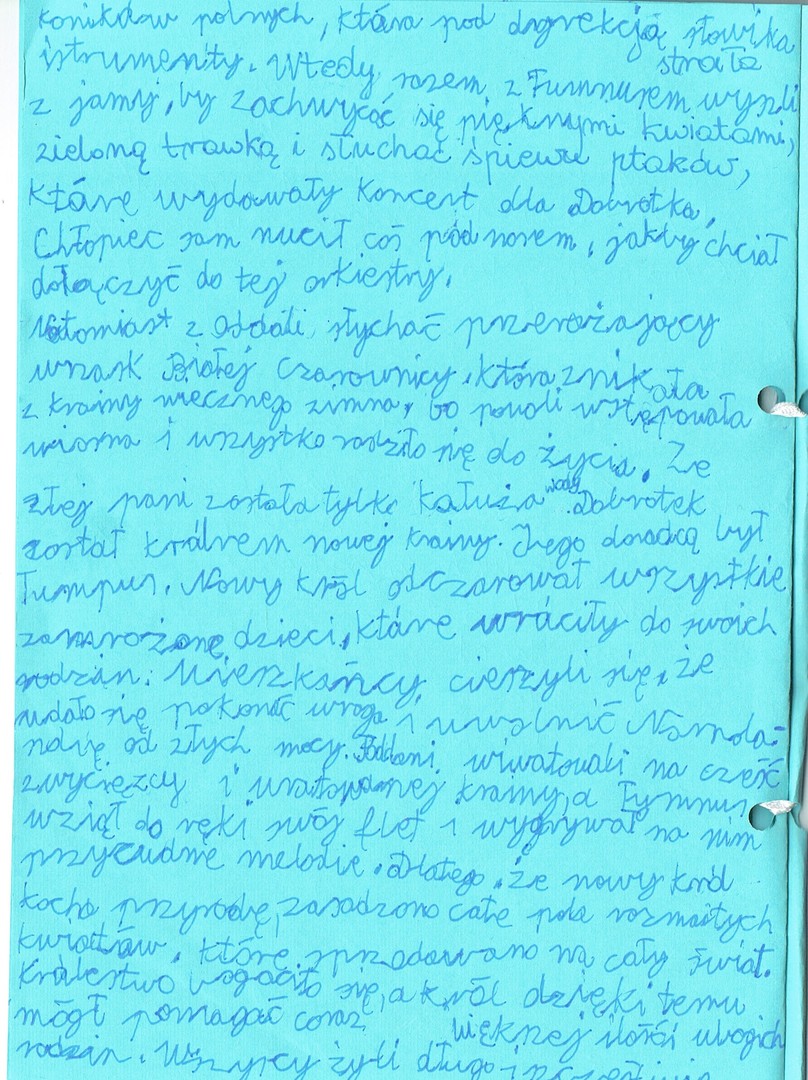 koników polnych, która pod dyrekcją słowika
istrumenty. Wtedy razem z Tumnusem wyszli
z jamy, by zachwycać się pięknymi kwiatami,
zieloną trawką i słuchać śpiewu ptaków,
które wydawały koncert dla Dobrotka.
Chłopiec sam nucił coś pod nosem, jakby chciał
dołączyć do tej orkiestry.
Natomiast z oddali słychać przerażający
wrzask Białej Czarownicy, która znikała
z krainy wiecznego zimna, bo powoli wstępowała
wiosna i wszystko rodziło się do życia. Ze
złej pani została tylko kałuża wody. Dobrotek
został królem nowej krainy. Jego doradcą był
Tumnus. Nowy król odczarował wszystkie
zamrożone dzieci, które wróciły do swoich
rodzin. Mieszkańcy cieszyli się, że
udało się pokonać wroga i uwolnić
od złych mocy. Poddani wiwatowali na cześć
zwycięzcy i uratowanej krainy, a Tymnus
wziął do ręki swój flet i wygrywał na nim
przycudne melodie. Dlatego, że nowy król
kocha przyrodę, zasadzono całe pola rozmaitych
kwiatów, które sprzedawano na cały świat.
Królestwo bogaciło się, a król dzięki temu
mógł pomagać coraz większej ilości ubogich
rodzin. Wszyscy żyli długo i szczęśliwie